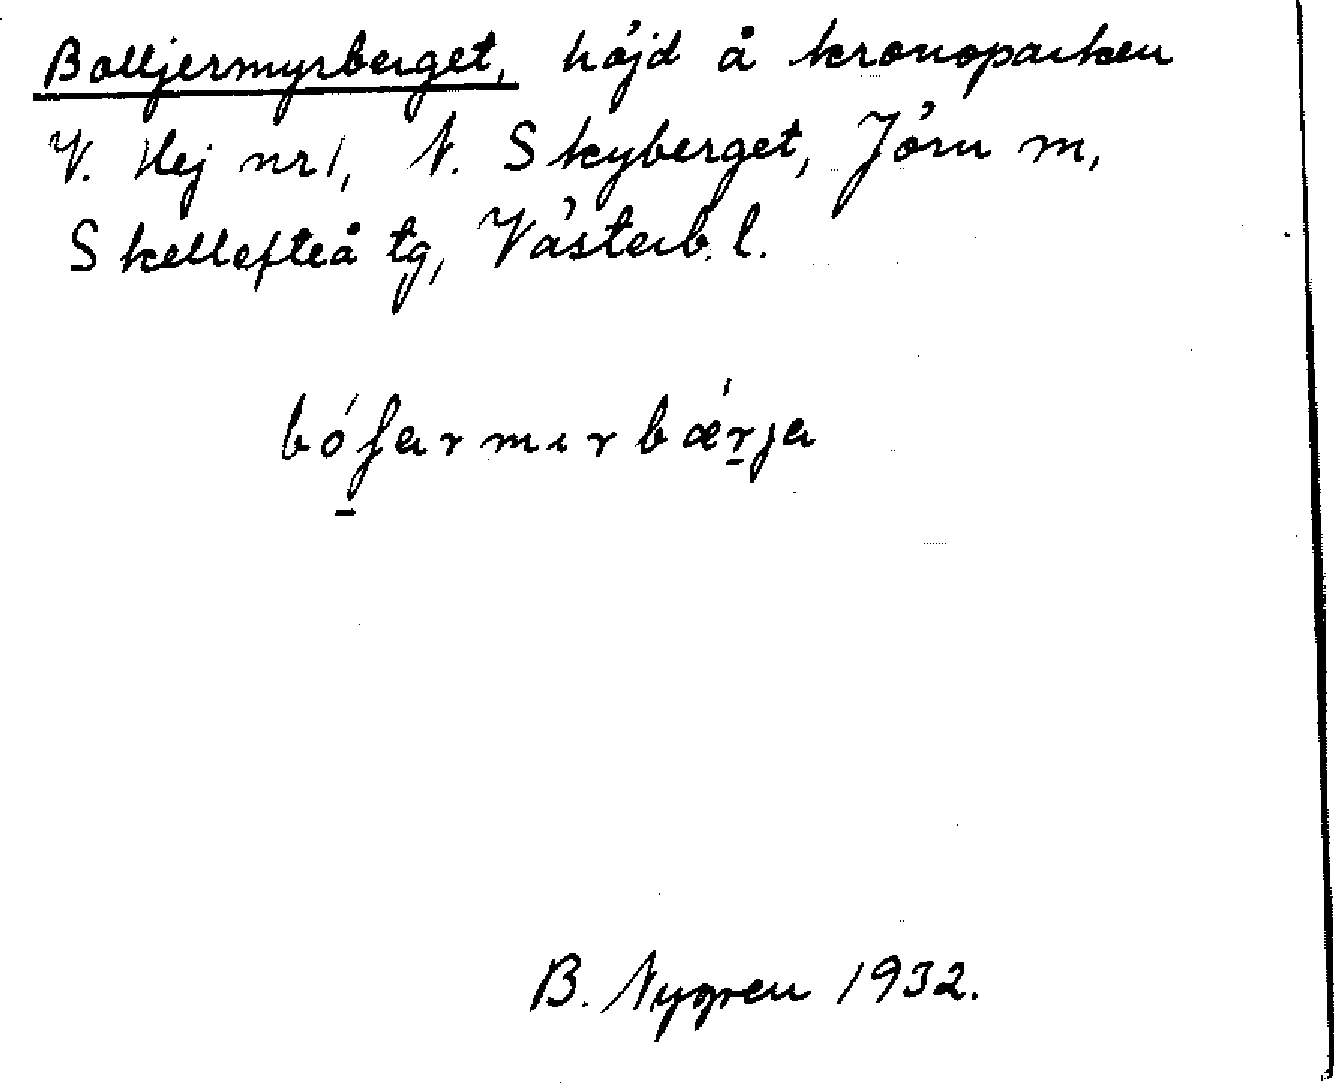 Bolljermyrberget, höjd å kronoparken
V. Hej nr 1, N. Skyberget, Jörn m,
Skellefteå tg, Västerb. l.
B. Nygren 1932.